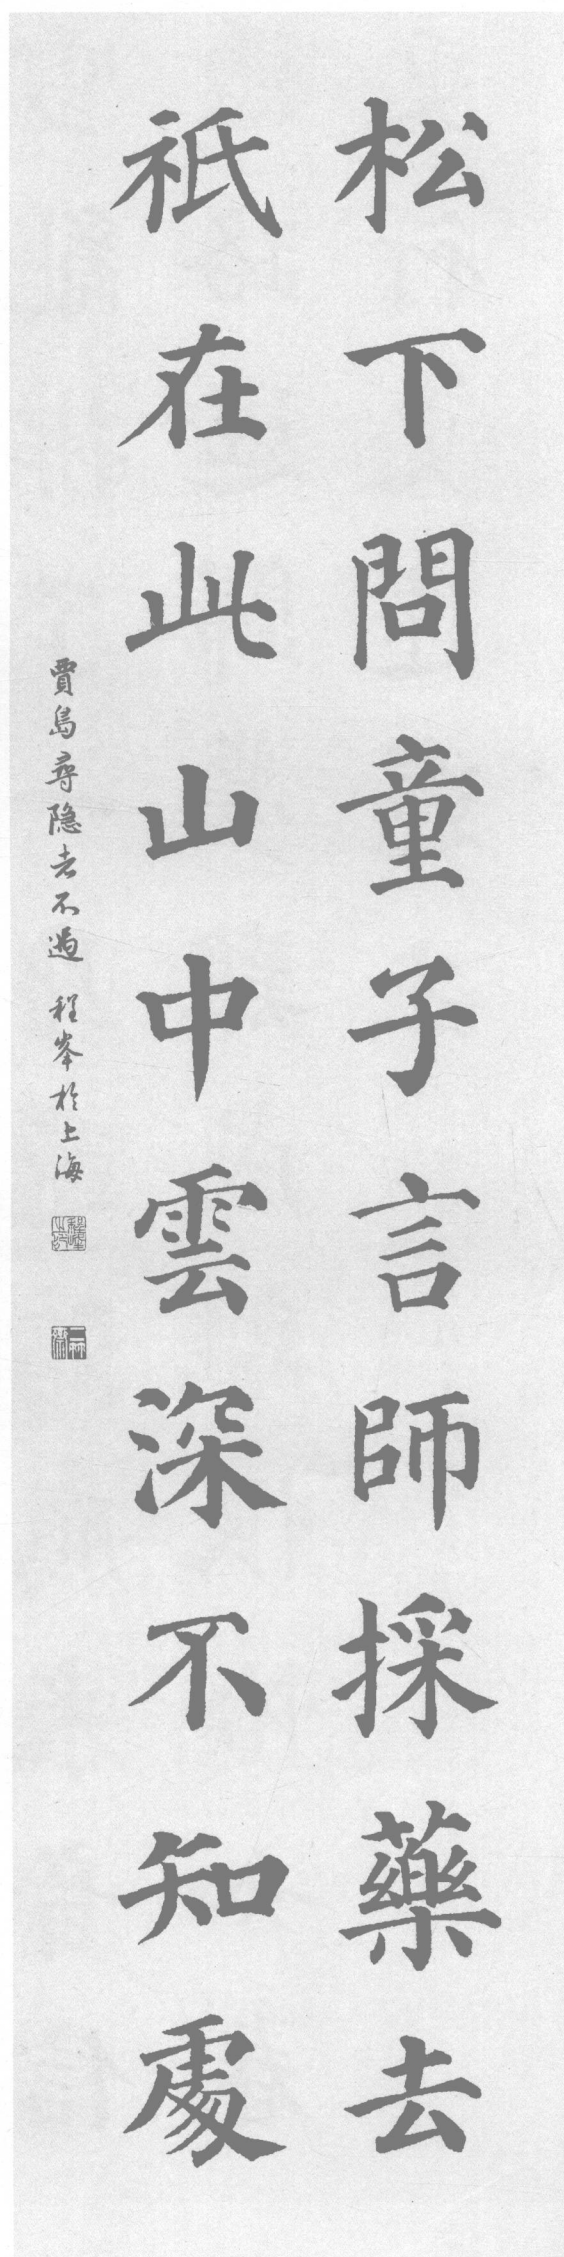 松下問童子言師採藥去
祇在此山中雲深不知處
賈島尋隐者不遇 程峯於上海